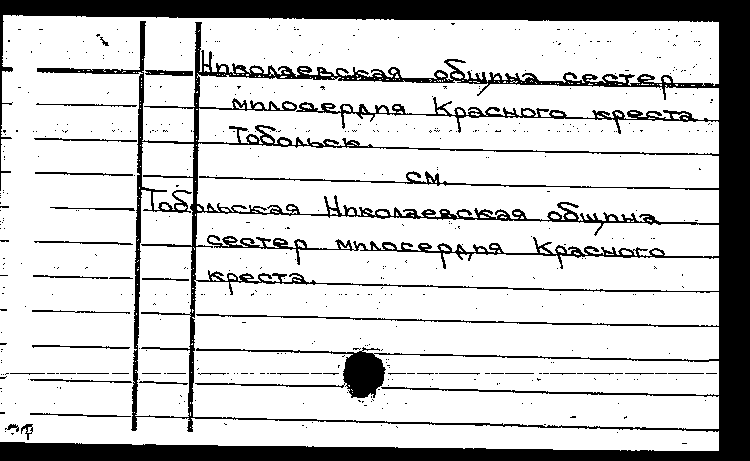 Николаевская община сестер
милосердия Красного креста.
Тобольск.
см.
Тобольская Николаевская община
сестер милосердия Красного
креста.